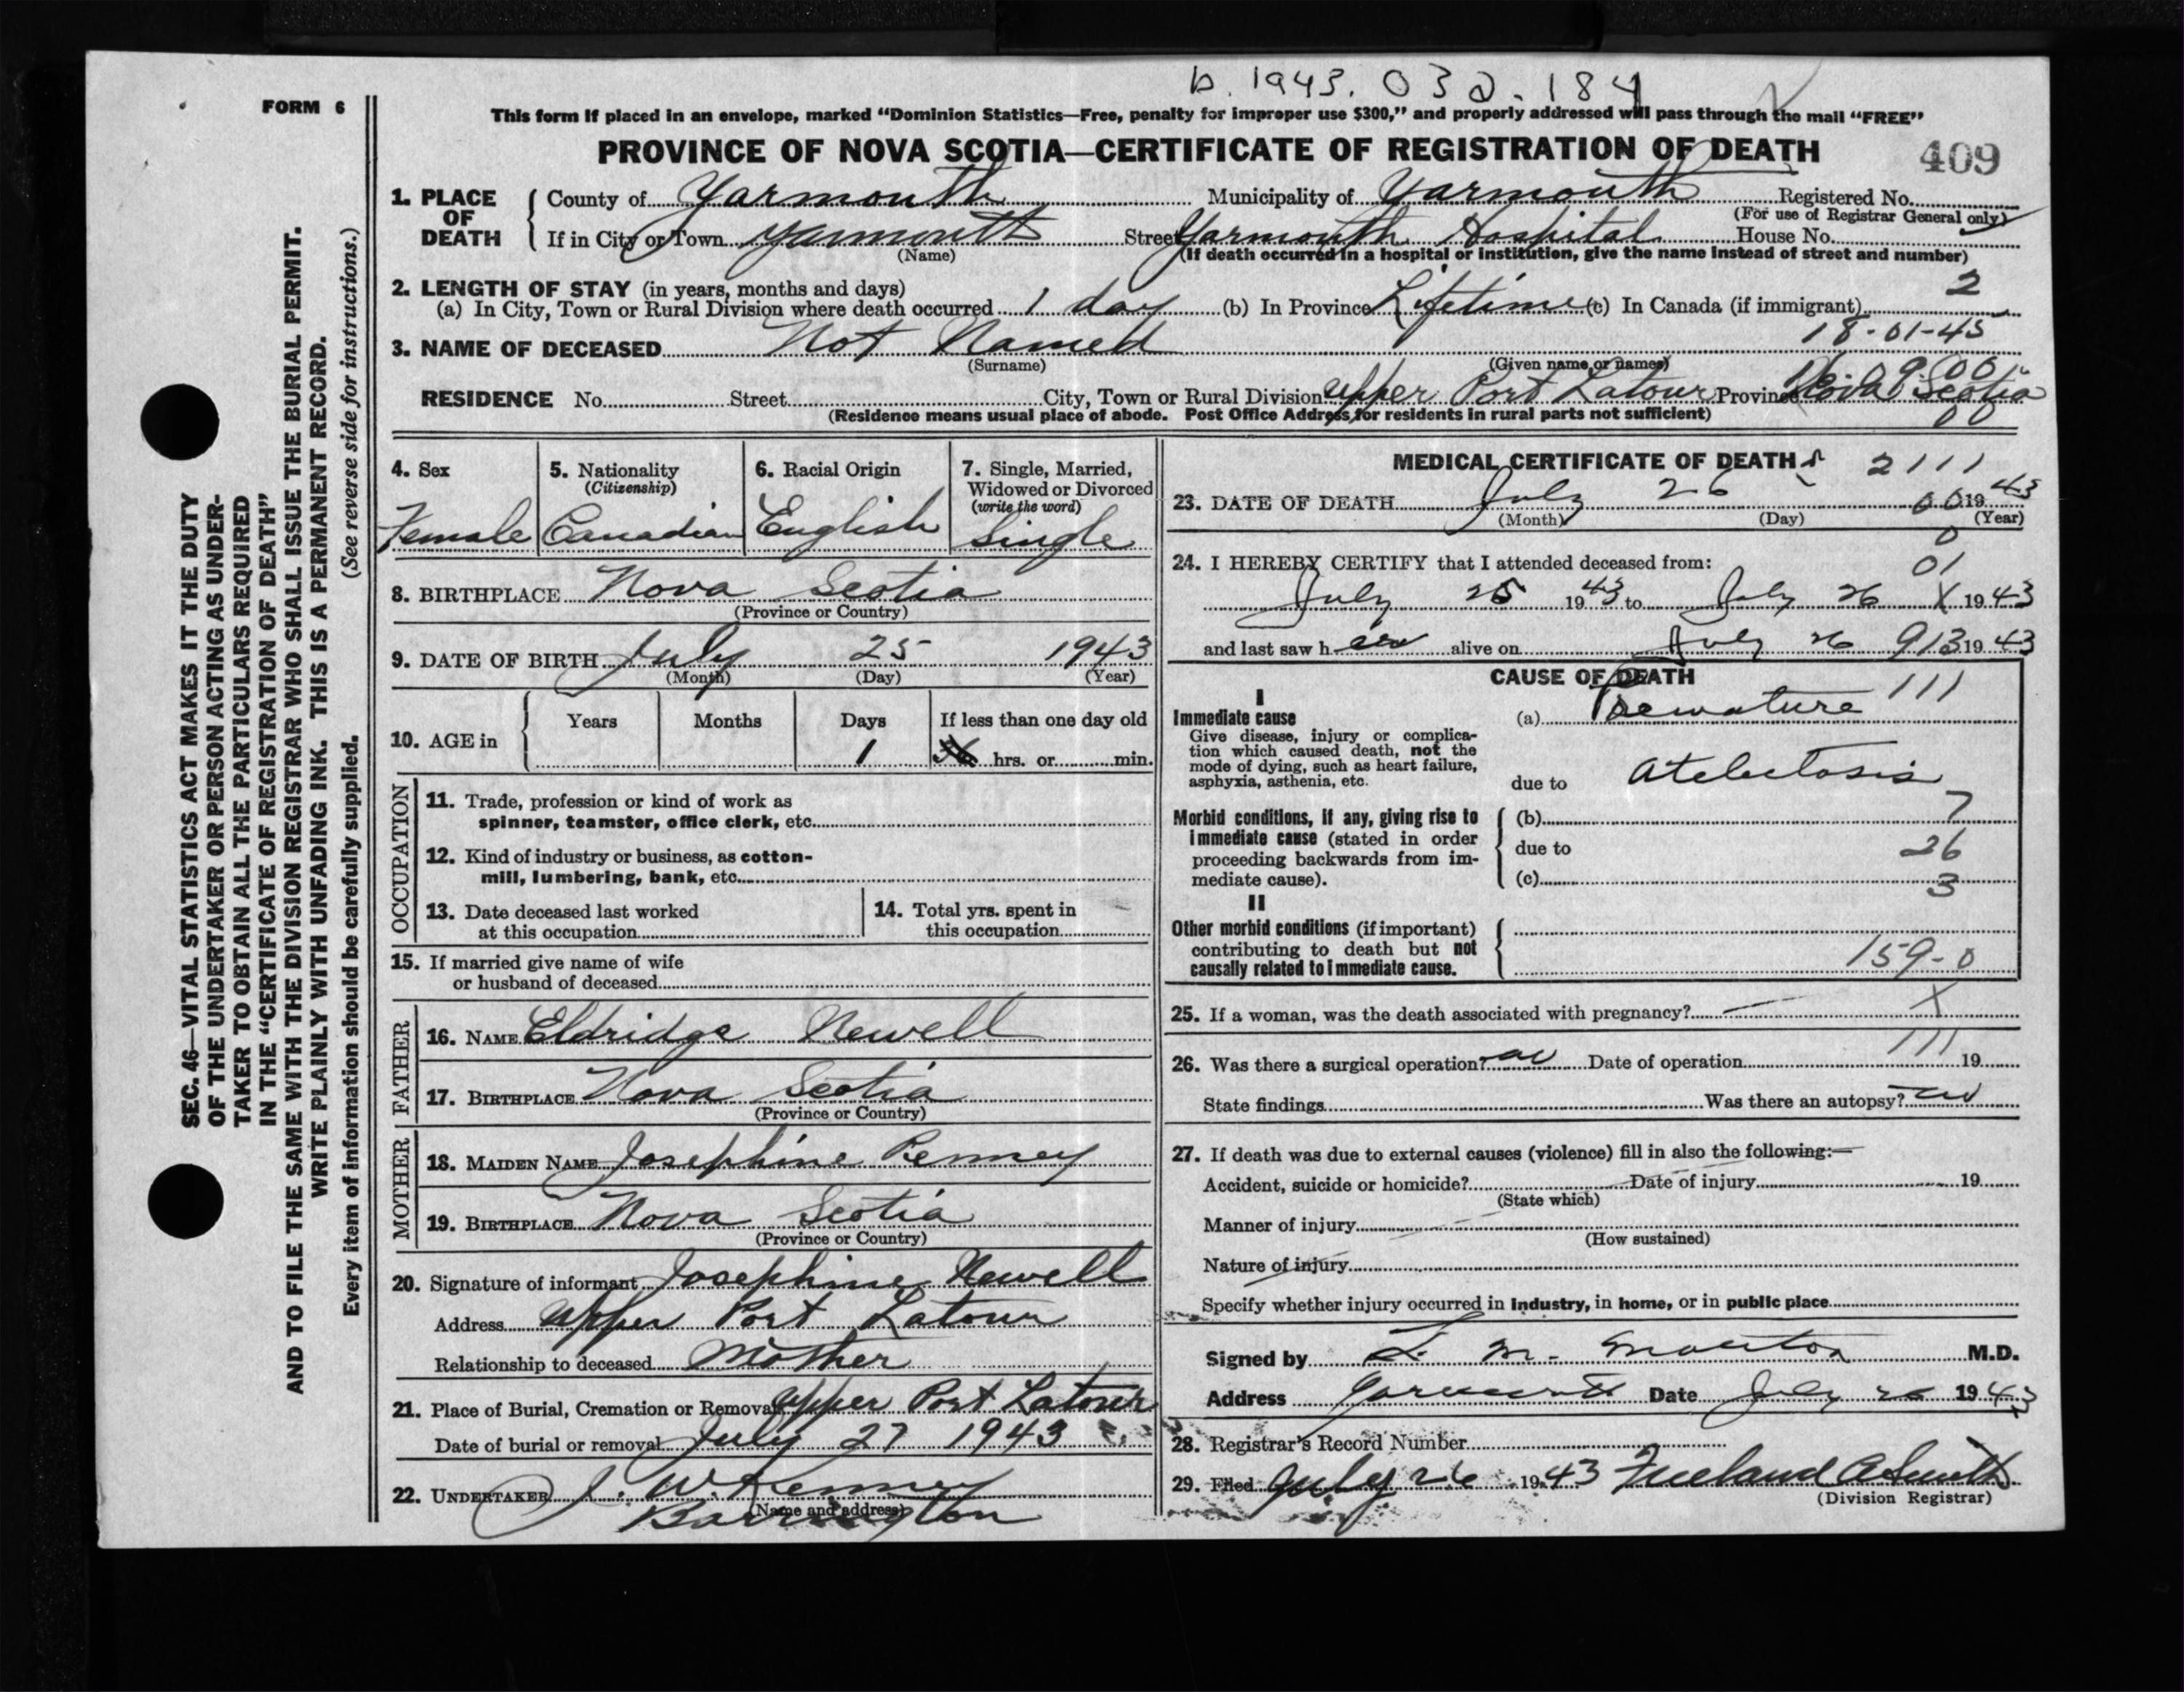 b. 1943. 032-184
FORM 6
This form if placed in an envelope, marked "Dominion Statistics—Free, penalty for improper use $300," and properly addressed will pass through the mail "FREE"
PROVINCE OF NOVA SCOTIA—CERTIFICATE OF REGISTRATION OF DEATH 409
1. PLACE OF DEATH County of Yarmouth Municipality of Yarmouth Registered No.
(For use of Registrar General only)
If in City or Town Yarmouth Street Yarmouth Hospital House No.
(Name) (If death occurred in a hospital or institution, give the name instead of street and number)
2. LENGTH OF STAY (in years, months and days) 2
(a) In City, Town or Rural Division where death occurred 1 day (b) In Province Lifetime (c) In Canada (if immigrant)
18-01-45
3. NAME OF DECEASED Not Named
(Surname) (Given name or names)
RESIDENCE No. Street City, Town or Rural Division Upper Port Latour Province Nova Scotia
(Residence means usual place of abode. Post Office Address for residents in rural parts not sufficient) 00
4. Sex 5. Nationality (Citizenship) 6. Racial Origin 7. Single, Married, Widowed or Divorced (write the word)
Female Canadian English Single
8. BIRTHPLACE Nova Scotia
(Province or Country)
9. DATE OF BIRTH July 25 1943
(Month) (Day) (Year)
10. AGE in Years Months Days If less than one day old
1 hrs. or min.
OCCUPATION
11. Trade, profession or kind of work as
spinner, teamster, office clerk, etc.
12. Kind of industry or business, as cotton-
mill, lumbering, bank, etc.
13. Date deceased last worked
at this occupation
14. Total yrs. spent in
this occupation
15. If married give name of wife
or husband of deceased
FATHER
16. NAME Eldridge Newell
17. BIRTHPLACE Nova Scotia
(Province or Country)
MOTHER
18. MAIDEN NAME Josephine Penney
19. BIRTHPLACE Nova Scotia
(Province or Country)
20. Signature of informant Josephine Newell
Address Upper Port Latour
Relationship to deceased Mother
21. Place of Burial, Cremation or Removal Upper Port Latour
Date of burial or removal July 27 1943
22. UNDERTAKER J. W. Kenney
(Name and address)
Barrington
MEDICAL CERTIFICATE OF DEATH 2111
23. DATE OF DEATH July 26 00 1943
(Month) (Day) (Year)
0
24. I HEREBY CERTIFY that I attended deceased from: 01
July 25 1943 to July 26 X 1943
and last saw her alive on July 26 913 1943
CAUSE OF DEATH
I
Immediate cause
Give disease, injury or complica-
tion which caused death, not the
mode of dying, such as heart failure,
asphyxia, asthenia, etc.
(a) Premature 111
due to Atelectasis
Morbid conditions, if any, giving rise to
immediate cause (stated in order
proceeding backwards from im-
mediate cause).
(b) 7
due to 26
(c) 3
II
Other morbid conditions (if important)
contributing to death but not
causally related to immediate cause.
159-0
25. If a woman, was the death associated with pregnancy? — X
111
26. Was there a surgical operation? no Date of operation 19
State findings Was there an autopsy? no
27. If death was due to external causes (violence) fill in also the following:—
Accident, suicide or homicide? Date of injury 19
(State which)
Manner of injury
(How sustained)
Nature of injury
Specify whether injury occurred in industry, in home, or in public place
Signed by L. M. Morton M.D.
Address Yarmouth Date July 26 1943
28. Registrar's Record Number
29. Filed July 26 1943 Freeland A Smith
(Division Registrar)
SEC. 46—VITAL STATISTICS ACT MAKES IT THE DUTY
OF THE UNDERTAKER OR PERSON ACTING AS UNDER-
TAKER TO OBTAIN ALL THE PARTICULARS REQUIRED
IN THE "CERTIFICATE OF REGISTRATION OF DEATH"
AND TO FILE THE SAME WITH THE DIVISION REGISTRAR WHO SHALL ISSUE THE BURIAL PERMIT.
WRITE PLAINLY WITH UNFADING INK. THIS IS A PERMANENT RECORD.
Every item of information should be carefully supplied. (See reverse side for instructions.)